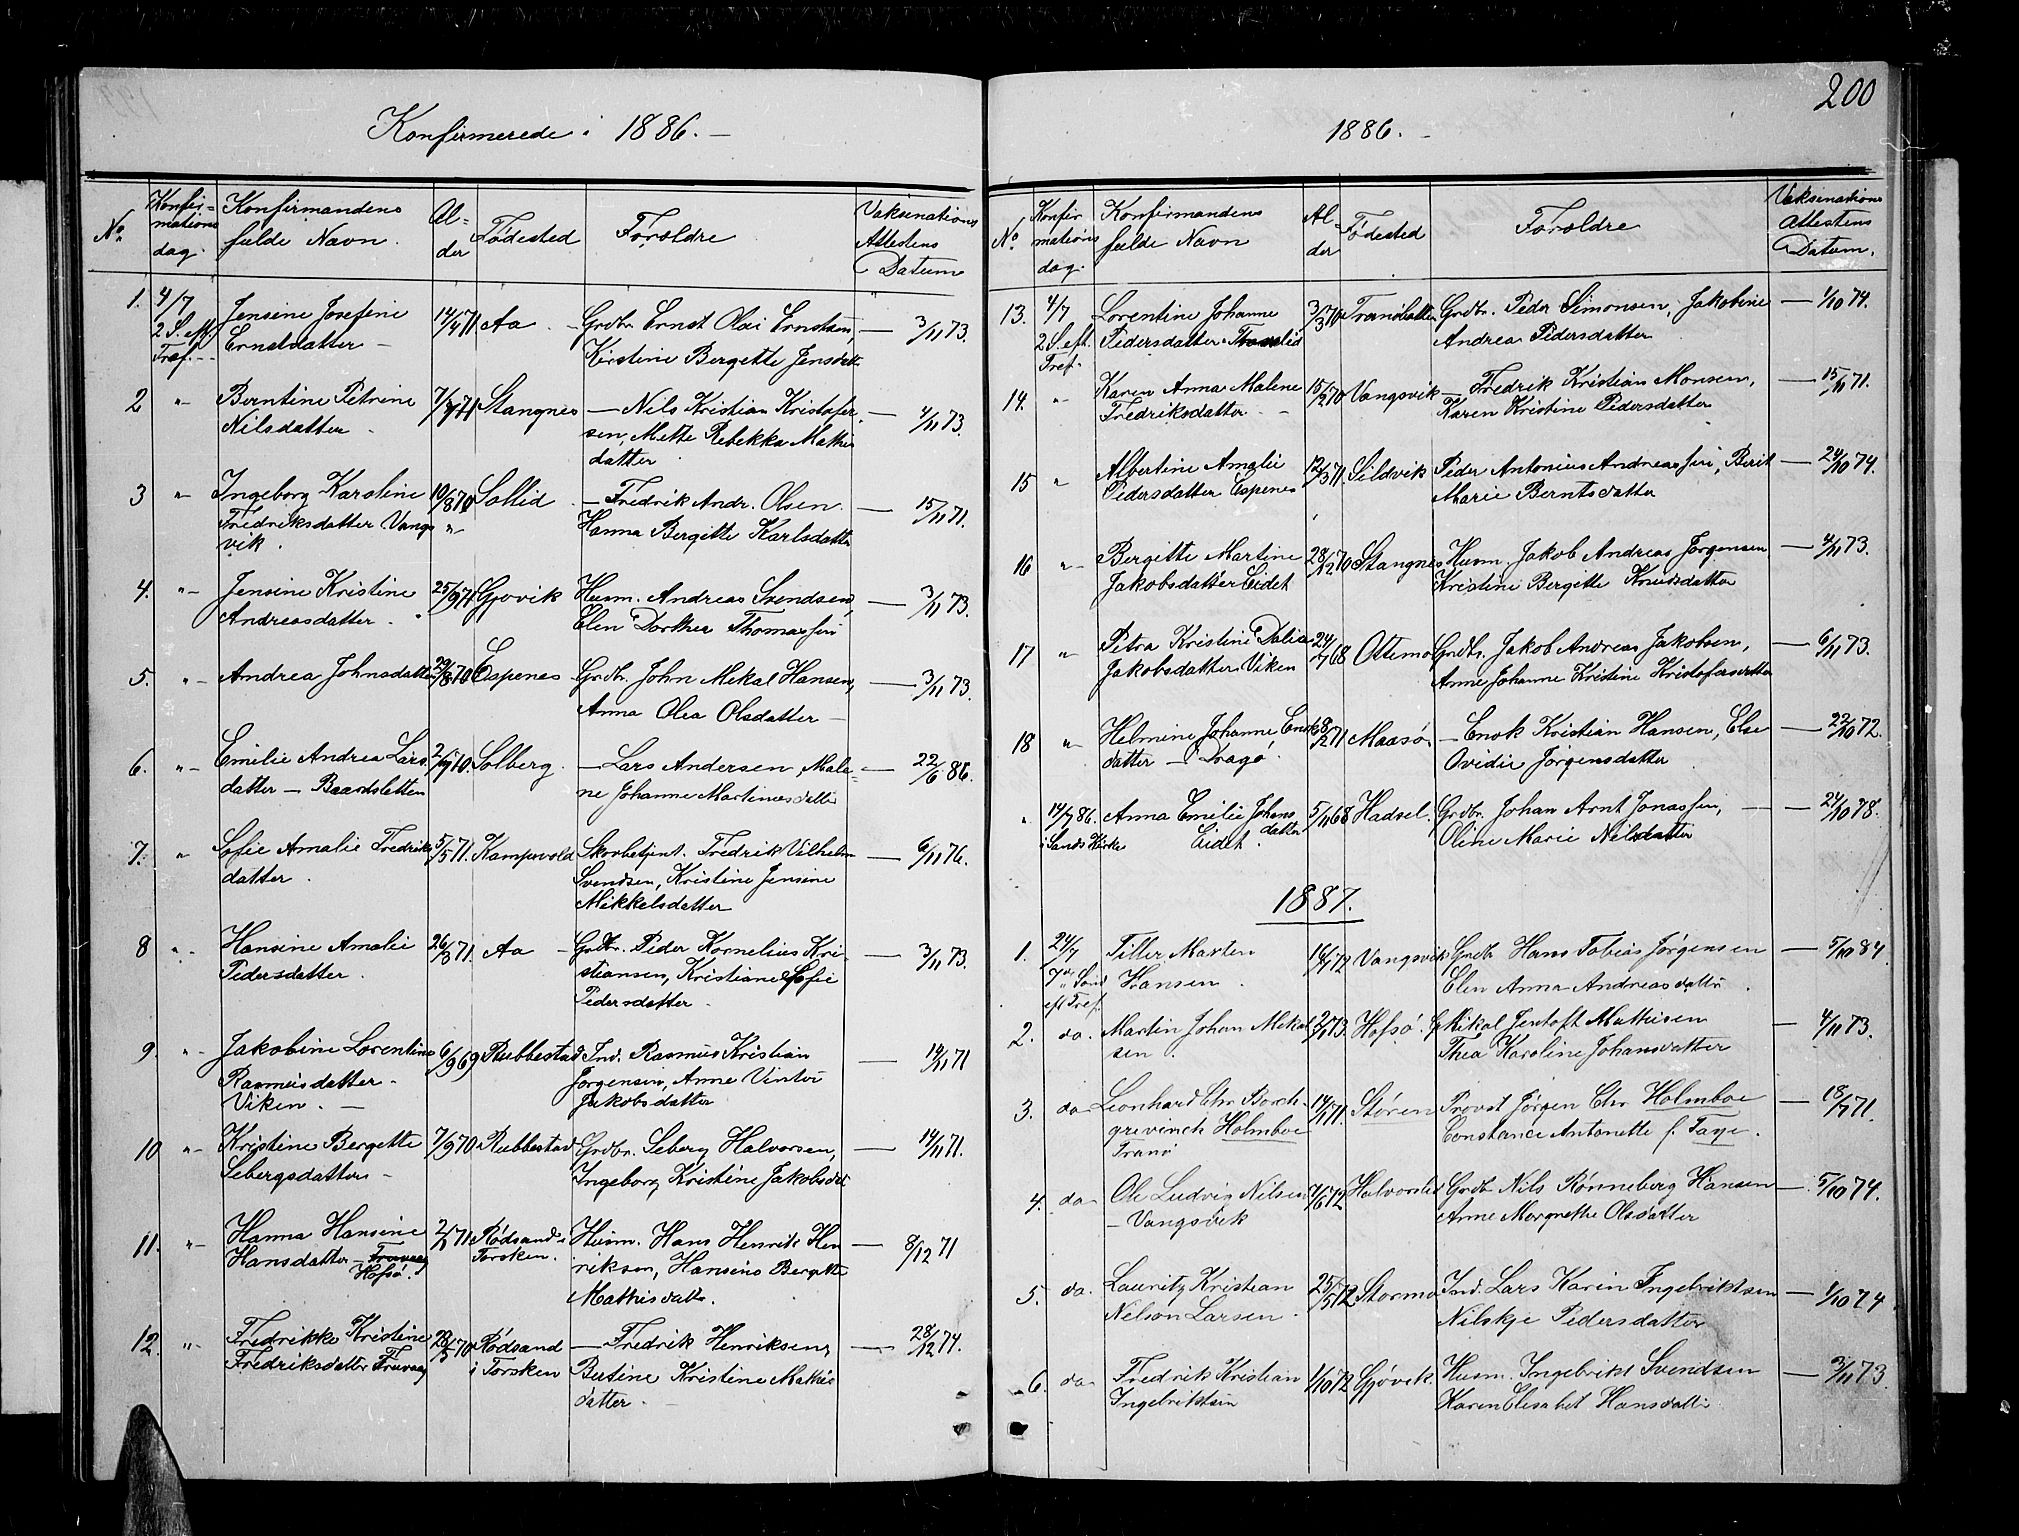 Konfirmerede i 1886. —
No.
Konfir-
mations
dag.
Konfirmandens
fulde Navn.
Al-
der
Fødested
Foroldre
Vaksinations
Attestens
Datum
1. 4/7 Jensine Josefine 14/4 71 Aa. — Grdbr. Ernst Olai Ernstsen, — 3/11 73.
2 S. eft. Ernstdatter — Kirstine Bergitte Jensdatt
Tref.
2 " Berntine Petrine Stangnes — Nils Kristian Kristofer- — 4/11 73.
Nilsdatter. sen, Mette Rebekka Mathis
datter
3 " Ingeborg Karoline 10/8 70 Sollid — Fredrik Andr. Olsen. — 15/11 71.
Fredriksdatter Vangs " Hanna Bergitte Karlsdatter
vik.
4. " Jensine Kristine 25/9 71 Gjovik Husm. Andreas Svendsen, — 3/11 73.
Andreasdatter. Elen Dorthea Thomassen
5. " Andrea Johnsdatter 29/8 70 Espenes Grdbr. John Mikal Hansen, — 3/11 73.
Anna Olea Olsdatter —
6. " Emilie Andrea Lars Solberg. — Lars Andersen, Male- — 22/6 86.
datter — Baardsletten ne Johanne Martinusdatter
7. " Sofie Amalie Fredriks 5/5 71. Kampevold Skovbetjent. Fredrik Vilhelm — 6/11 76.
datter. Svendsen, Kristine Jensine
Mikkelsdatter
8 " Hansine Amalie 26/3 71. Aa — Grdbr. Peder Kornelius Kri- — 3/11 73.
Pedersdatter. stiansen, Kristiane Sofie
Pedersdatter.
9. " Jakobine Lorentine 6/9 69 Rubbestad Ind. Rasmus Kristian — 14/11 71
Rasmusdatter — Jørgensen, Anne
Viken. — Jakobsdatter
10 " Kristine Bergette 7/9 70 Rubbestad Grdbr. Seberg Halvorsen, — 14/11 71.
Sebergsdatter — Ingeborg Kristine Jakobsdat
11. " Hanna Hansine Rødsand i Husm. Hans Henrik Hen — 8/12 71
Hansdatter — Torsken. riksen, Hansine Bergitte
Hofsø. Mathisdatt.
12. " Fredrikke Kristine Rødsand — Fredrik Henriksen, — 28/12 74.
Fredriksdatter i Torsken Bertine Kristine Mathis
datter. —
200
1886. —
No
Konfir
mations
dag.
Konfirmandens
fulde Navn
Al-
der
Fødested
Foroldre
Vaksinations
Attestens
Datum.
13. 4/7 Lorentine Johanne 3/3 70 Grdbr. Peder Simonsen, Jakobine — 1/10 74.
2 S. eft. Pedersdatter Andrea Pedersdatter
Tref.
14. " Karen Anna Malene 15/2 70 Vangsvik — Fredrik Kristian Monsen, — 15/11 71.
Fredriksdatter — Karen Kristine Pedersdatter
15 " Albertine Amalie 12/3 71. Sildvik Peder Antonius Andreassen, Berit — 24/10 74.
Pedersdatter Espenes Marie Berntsdatter
16 " Bergitte Martine 28/12 70 Stangnes Husm. Jakob Andreas Jørgensen — 4/11 73.
Jakobsdatter Eidet Kristine Bergitte Knudsdatter
17 " Petra Kristine Dalia 24/7 68 Ottemo Grdbr. Jakob Andreas Jakobsen, — 6/11 73.
Jakobsdatter Viken Anne Johanne Kristine Kristofersdatter
18 " Helmine Johanne Enoks Maasø — Enok Kristian Hansen, Else — 22/10 72.
datter — Dragø. Ovidie Jørgensdatter
" 14/7 86. Anna Emilie Johans 5/11 68 Hadsel. Grdbr. Johan Arnt Jonassen, — 24/10 78.
i Sands Kirke datter Eidet. Oline Marie Nilsdatter
1887.
1. 24/7 Tiller Marten Vangsvik Grdb Hans Tobias Jørgensen — 5/10 84.
7de Sønd Hansen. Elen Anna Andreasdatter
eft Tref.
2. do. Martin Johan Mikal Hofsø. G. Mikal Jentoft Mathisen — 4/11 73.
sen. Thea Karoline Johansdatter
3. do Leonhard Chr Borch- Støren Provst Jörgen Chr Holmboe — 18/7 71.
grevinck Holmboe Constance Antonette f. Taye.
Tranø
4. do Ole Ludvig Nilsen Halvorslid Grdb Nils Rønneberg Hansen — 5/10 74.
— Vangsvik Anne Margrethe Olsdatter
5. do. Lauritz Kristian 25/5 72 Stormo Ind. Lars Karin Ingebriktsen — 1/10 74
Nelson Larsen. Nilskje Pedersdatter
6. do Fredrik Kristian 1/10 72 Gjøvik Husm. Ingebrikt Svendsen — 3/11 73.
Ingebriktsen Karen Elisabet Hansdatter